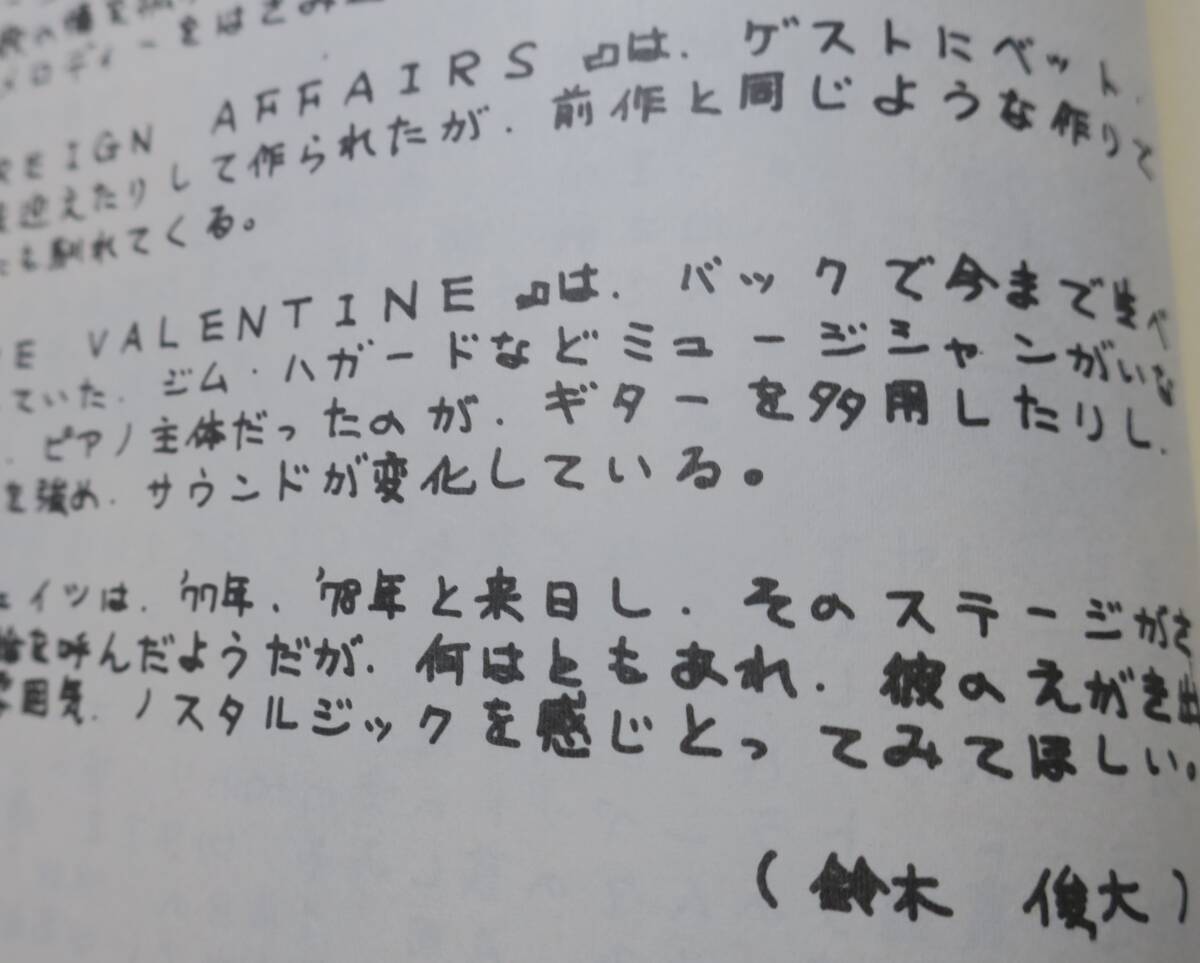 メロディーをはさみ
REIGN AFFAIRS』は、ゲストにベット、
迎えたりして作られたが、前作と同じような作りで
も馴れてくる。
E VALENTINE』は、バックで今まで
ていた、ジム・ハガードなどミュージシャンがいな
、ピアノ主体だったのが、ギターを多用したりし、
を強め、サウンドが変化している。
ェイツは、'77年、'78年と来日し、そのステージがさ
を呼んだようだが、何はともあれ、彼のえがき出
雰囲気、ノスタルジックを感じとってみてほしい。
(鈴木 俊大)